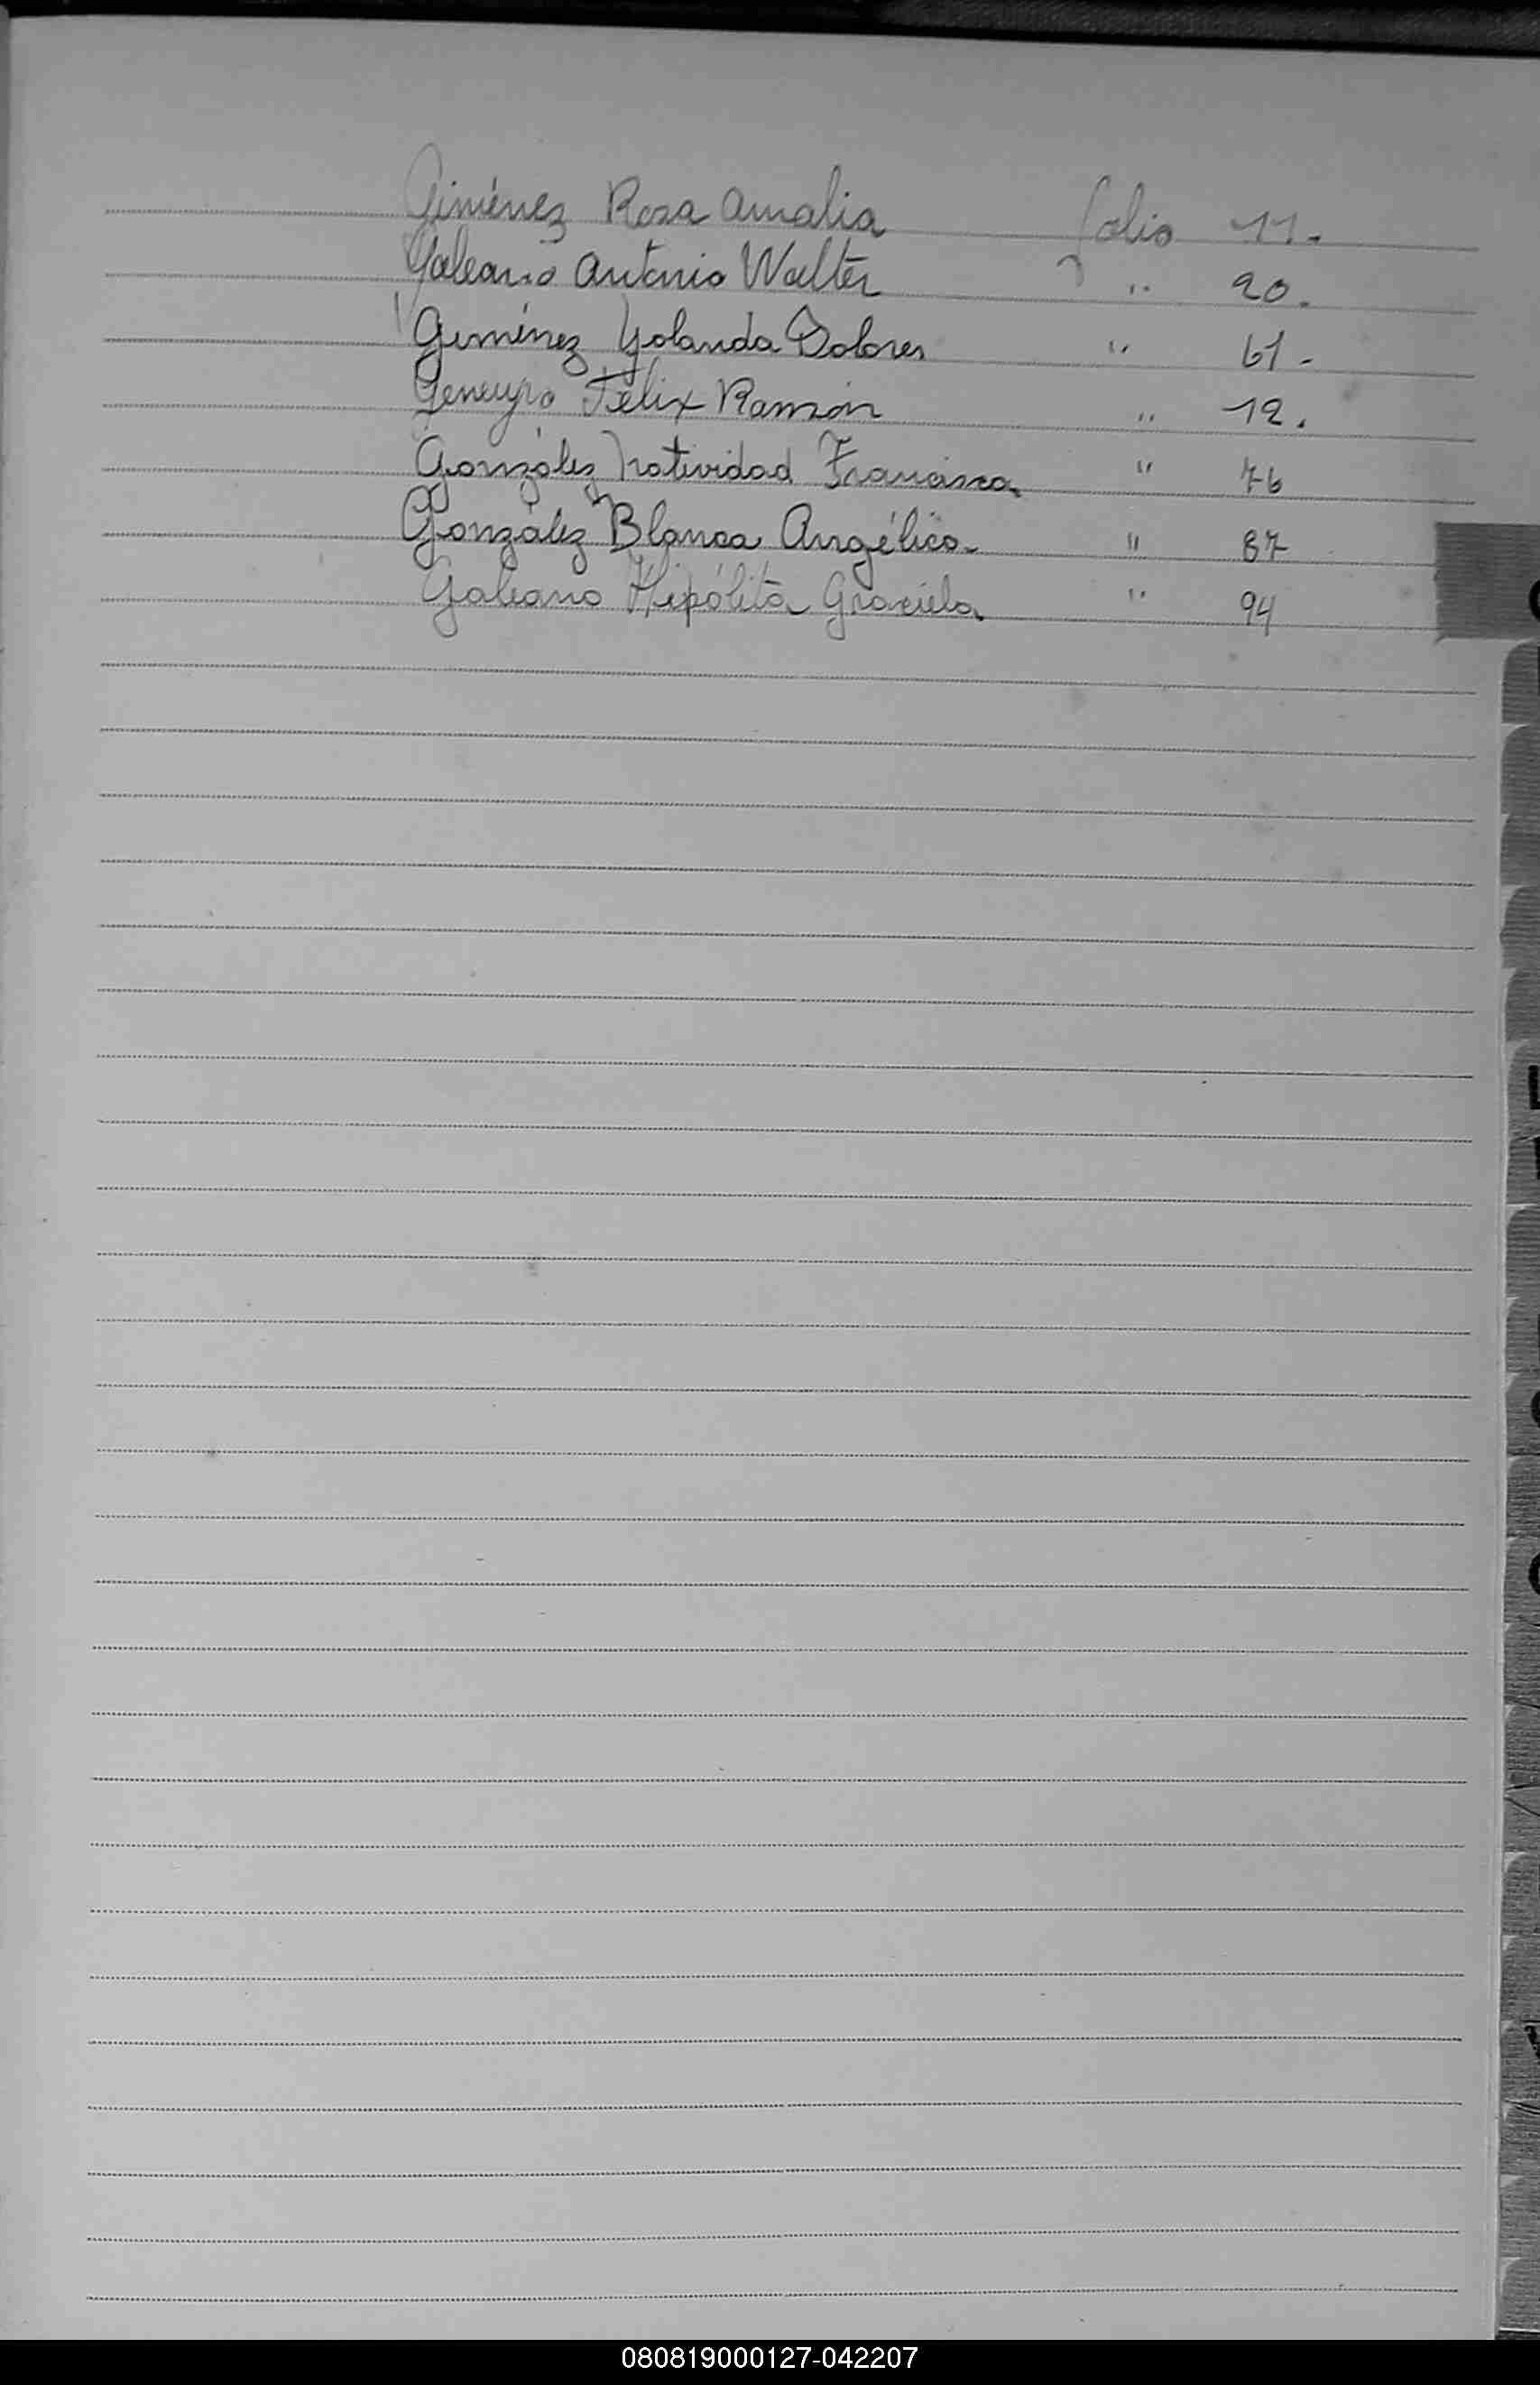 Giménez Rosa Amalia folio 11.
Galeano Antonio Walter " 20.
Giménez Yolanda Dolores " 61-
Geneyro Félix Ramón " 12.
González Natividad Francisca " 76
González Blanca Angélica " 87
Galeano Hipólita Graciela " 94
080819000127-042207